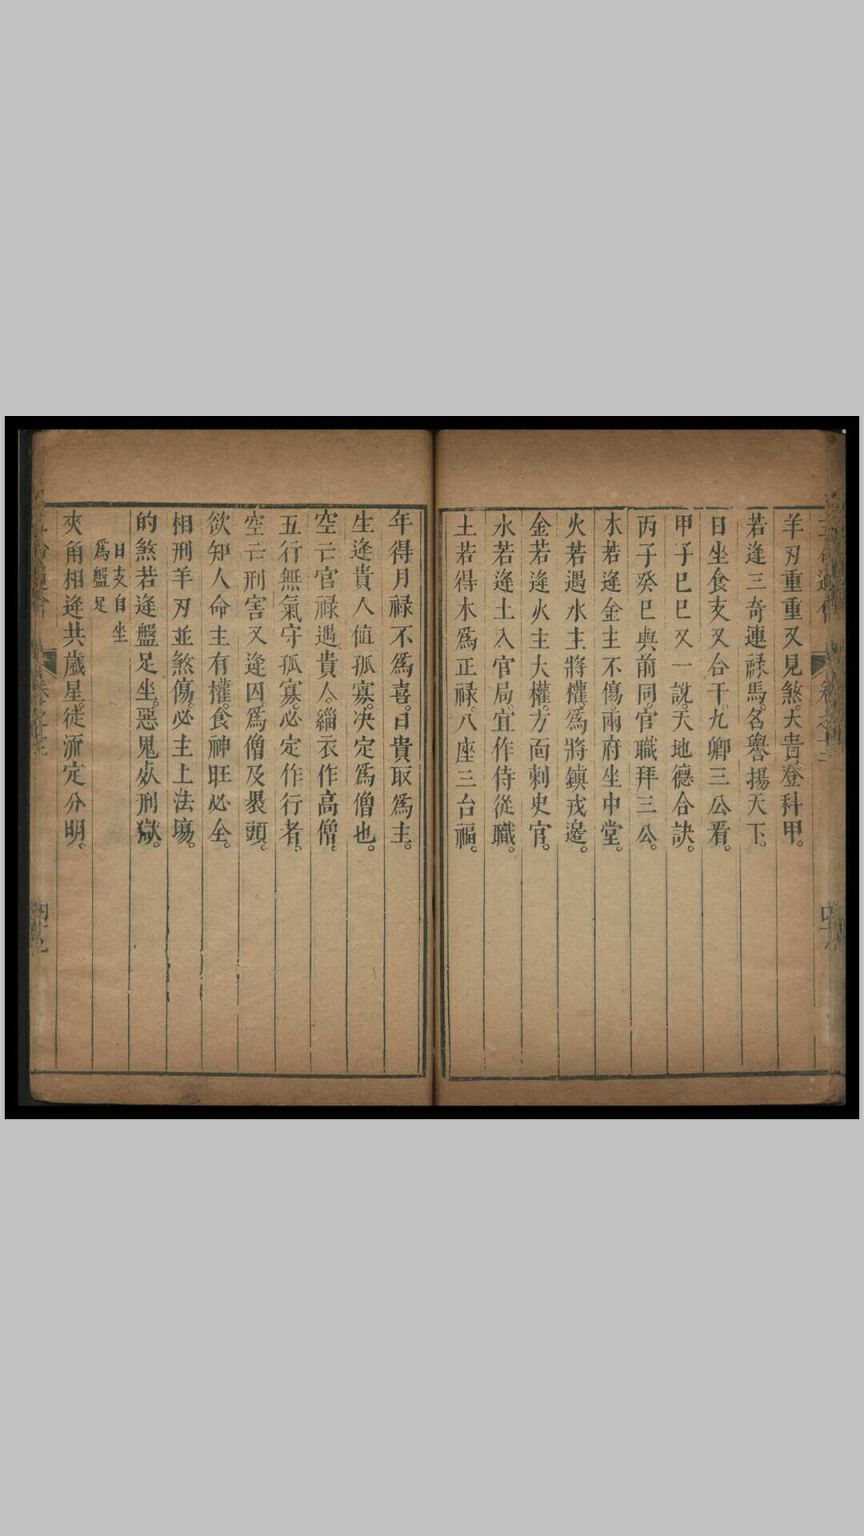 羊刃重重又見煞。大貴登科甲。
若逢三奇連祿馬。名譽揚天下。
日坐食支又合干九卿三公看。
甲子巳巳又一說天地德合訣。
丙子癸巳與前同。官職拜三公。
木若逢金主不傷兩府坐中堂。
火若遇水主將權。爲將鎮戎邊。
金若逢火主大權。方面刺史官。
水若逢土入官局。宜作侍從職。
土若得木爲正祿。八座三台福。
年得月祿不爲喜。日貴取爲主。
生逢貴人值孤寡。决定爲僧也。
空亡官祿遇貴人。緇衣作高僧。
五行無氣守孤寡。必定作行者。
空亡刑害又逢囚。爲僧及裹頭。
欲知人命主有權。食神旺必全。
相刑羊刃並煞傷。必主上法場。
的煞若逢盤足坐。惡鬼㱕刑獄。
日支自坐
爲盤足
夾角相逢共歲星。徒流定分明。